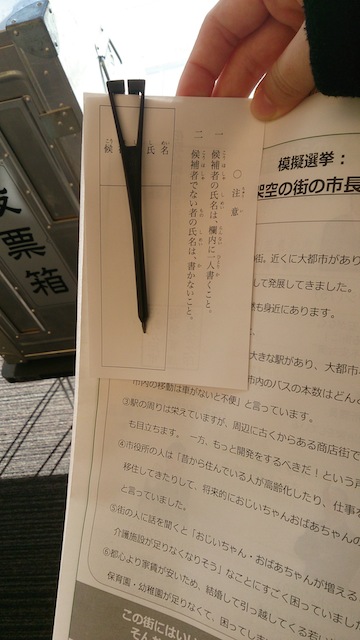 票箱
○ 注意
一 候補者の氏名は、欄内に一人書くこと。
二 候補者でない者の氏名は、書かないこと。
候 氏名
模擬選挙：
架空の街の市長
街。近くに大都市があり
して発展してきました。
も身近にあります。
大きな駅があり、大都市
市内のバスの本数はどん
市内の移動は車がないと不便」と言っています。
③駅の周りは栄えていますが、周辺に古くからある商店街
も目立ちます。一方、もっと開発をするべきだ！という
④市役所の人は「昔から住んでいる人が高齢化したり、仕事を
移住してきたりして、将来的におじいちゃんおばあちゃんの
と言っていました。
⑤街の人に話を聞くと「おじいちゃん・おばあちゃんが増える
介護施設が足りなくなりそう」なことにすごく困っていまし
⑥都心より家賃が安いため、結婚して引っ越してくる若い
保育園・幼稚園が足りなくて、困って
この街にはいい
そん